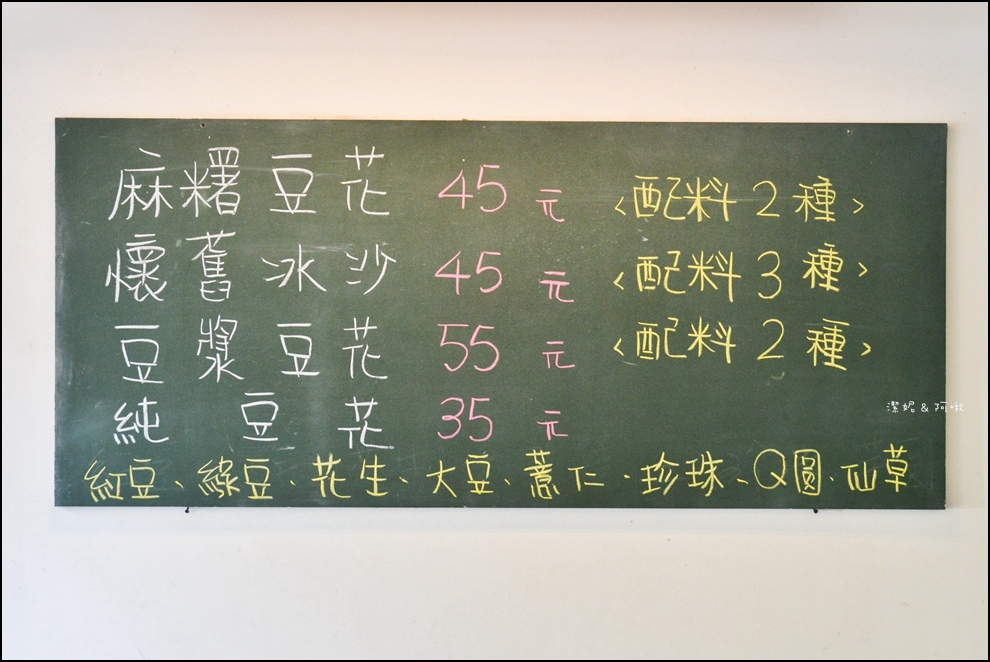 麻糬豆花 45元 <配料2種>
懷舊冰沙 45元 <配料3種>
豆漿豆花 55元 <配料2種>
純豆花 35元
潔妮&阿啾
紅豆、綠豆、花生、大豆、薏仁、珍珠、Q圓、仙草